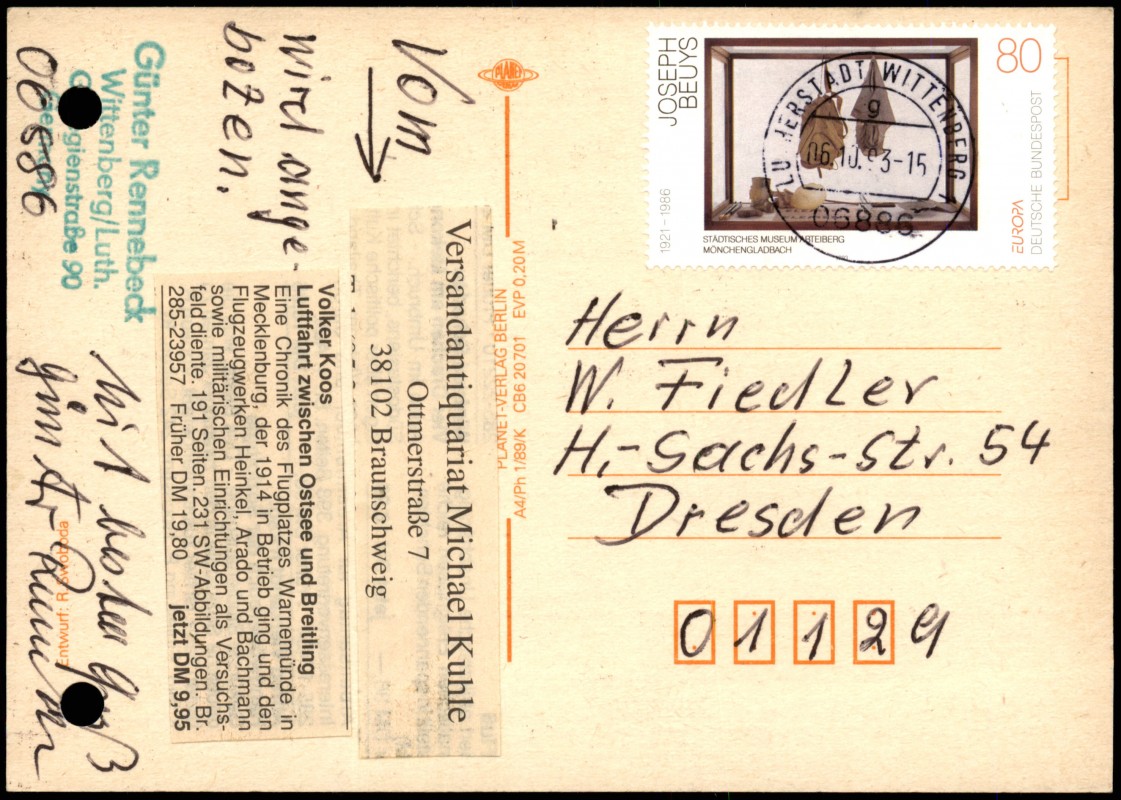 Günter Rennebeck
Wittenberg/Luth.
gienstraße 90
06886
Vom
wird ange-
boten.
Versandantiquariat Michael Kuhle
Ottmerstraße 7
38102 Braunschweig
Volker Koos
Luftfahrt zwischen Ostsee und Breitling
Eine Chronik des Flugplatzes Warnemünde in
Mecklenburg, der 1914 in Betrieb ging und den
Flugzeugwerken Heinkel, Arado und Bachmann
sowie militärischen Einrichtungen als Versuchs-
feld diente. 191 Seiten. 231 SW-Abbildungen. Br.
285-23957 Früher DM 19,80 jetzt DM 9,95
Mit bestem Gruß
Entwurf: R. Swoboda
PLANET
PLANET-VERLAG BERLIN
A4/Ph 1/89/K CB6 20701 EVP 0,20M
JOSEPH
BEUYS
1921–1986
80
STÄDTISCHES MUSEUM ABTEIBERG
MÖNCHENGLADBACH
EUROPA
DEUTSCHE BUNDESPOST
LUTHERSTADT WITTENBERG
g
06.10.93-15
06886
Herrn
W. Fiedler
H.-Sachs-Str. 54
Dresden
01129